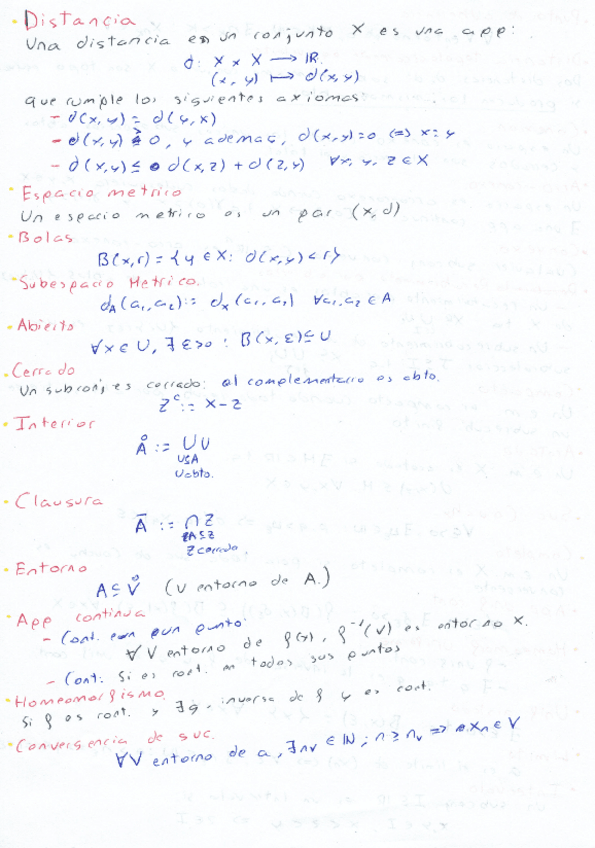 Distancia
Una distancia en un conjunto X es una app:
d: X x X → IR
(x, y) ↦ d(x,y)
que cumple los siguientes axiomas:
- d(x,y) = d(y,x)
- d(x,y) ≥ 0, y ademas, d(x,y)=0 ⇔ x=y
- d(x,y) ≤ d(x,z) + d(z,y) ∀x, y, z ∈ X
Espacio metrico
Un espacio metrico es un par (x,d)
Bolas
B(x,r) = {y ∈ X: d(x,y) < r}
Subespacio Metrico.
d_A(a₁,a₂) := d_x(a₁,a₂) ∀a₁,a₂ ∈ A
Abierto
∀x ∈ U, ∃ ε>0 : B(x, ε) ⊆ U
Cerrado
Un subconj es cerrado: el complementario es abto.
Z^c := X - Z
Interior
Å := ∪ U
U⊆A
U abto.
Clausura
Ā := ∩ Z
A ⊆ Z
Z cerrado.
Entorno
A ⊆ V̊ (V entorno de A.)
App continua
- Cont. en un punto:
∀ V entorno de f(x), f⁻¹(V) es entorno X.
- Cont: Si es cont. en todos sus puntos
Homeomorfismo.
Si f es cont. y ∃ g, inversa de f y es cont.
Convergencia de suc.
∀V entorno de a, ∃n_V ∈ IN ; n ≥ n_V ⇒ x_n ∈ V